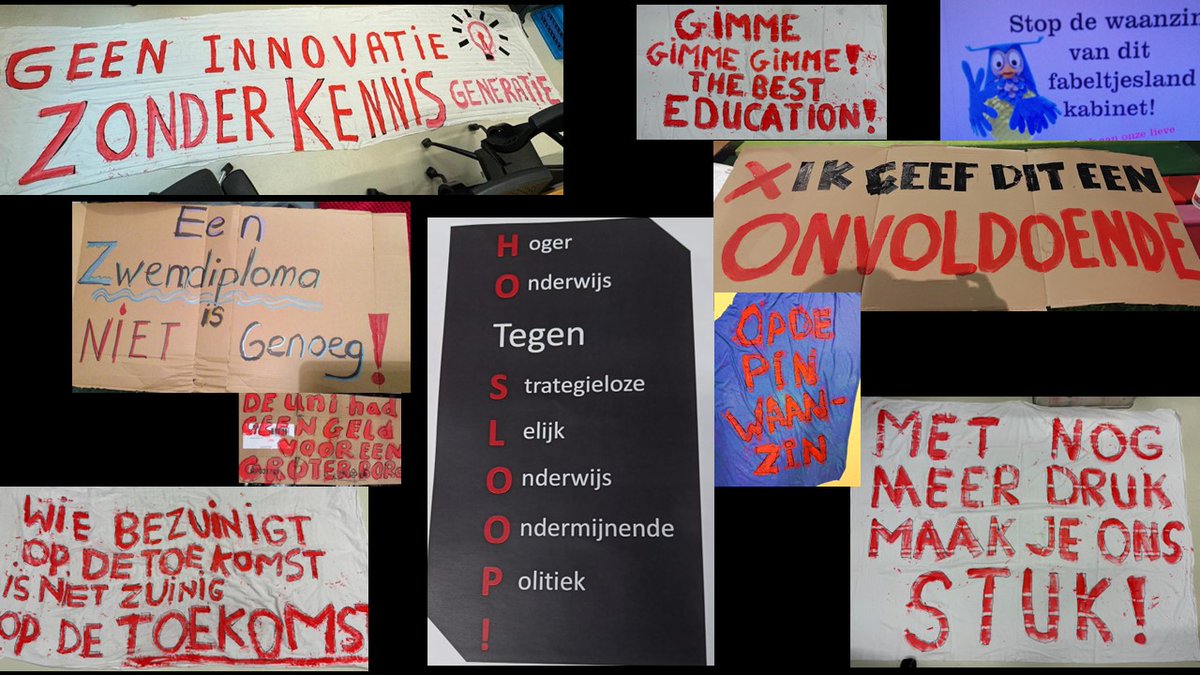 GEEN INNOVATIE
ZONDER KENNIS
GENERATIE
GIMME
GIMME GIMME!
THE BEST
EDUCATION!
Stop de waanzin
van dit
fabeltjesland
kabinet!
aan onze lieve
X IK GEEF DIT EEN
ONVOLDOENDE
Een
Zwemdiploma
is
NIET Genoeg!
Hoger
Onderwijs
Tegen
Strategieloze
Lelijk
Onderwijs
Ondermijnende
Politiek
!
OP DE
PIN
WAAN-
ZIN
DE UNI had
GEEN GELD
VOOR EEN
GROTER
WIE BEZUINIGT
OP DE TOEKOMST
IS NET ZUINIG
OP DE TOEKOMST
MET NOG
MEER DRUK
MAAK JE ONS
STUK!